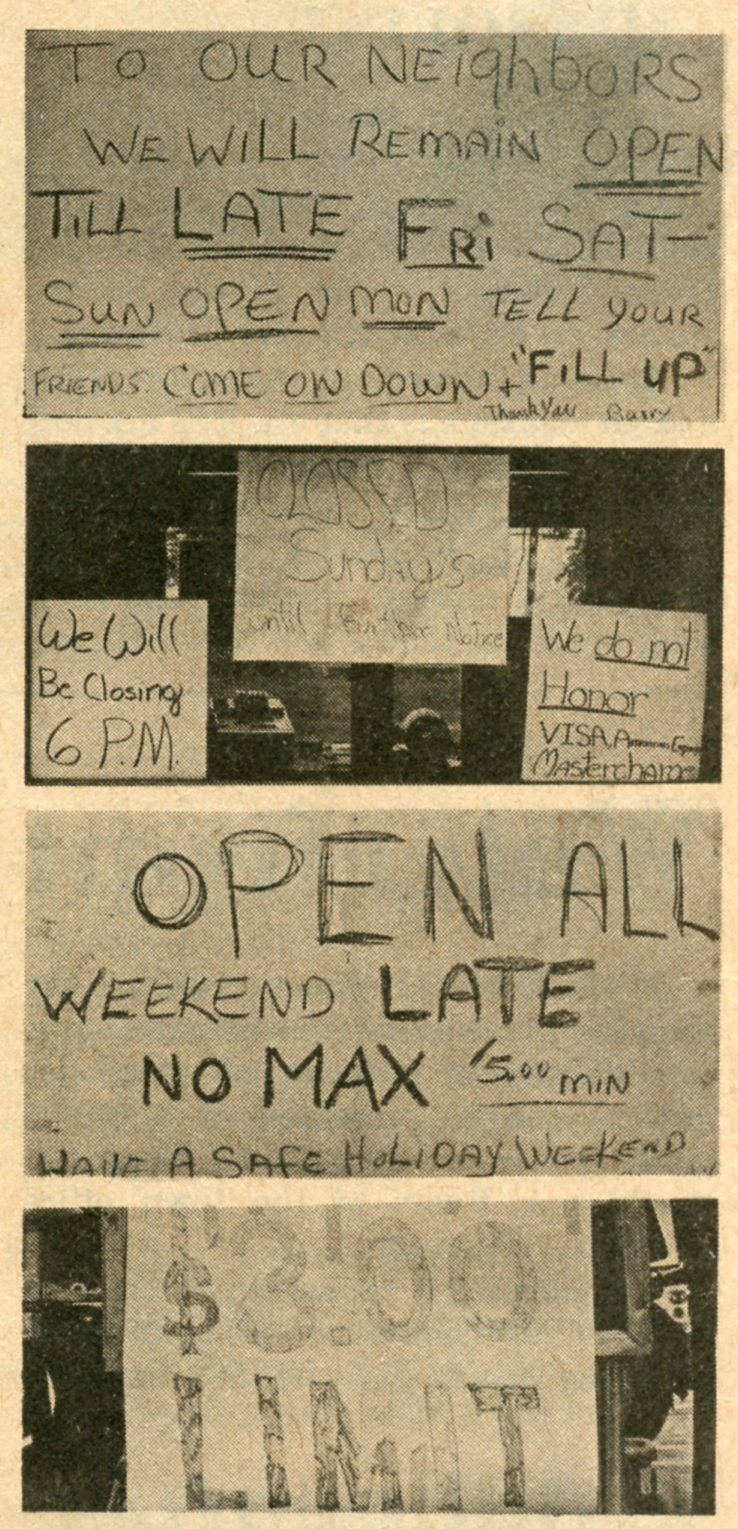 TO OUR NEighbORS
WE WILL REMAIN OPEN
TILL LATE FRi SAT-
SUN OPEN MON TELL YOUR
FRIENDS. COME ON DOWN + "FiLL UP"
Thank You Barry
CLOSED
Sunday's
until Further Notice
We Will
Be Closing
6 P.M.
We do not
Honor
VISA
Mastercharge
OPEN ALL
WEEKEND LATE
NO MAX 5.00 MIN
HAVE A SAFE HOLIDAY WEEKEND
$3.00
LIMIT